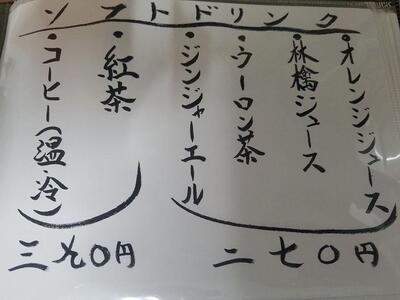 ソフトドリンク
・オレンジジュース
・林檎ジュース
・ウーロン茶
・ジンジャーエール
二七〇円
・紅茶
・コーヒー(温・冷)
三九〇円